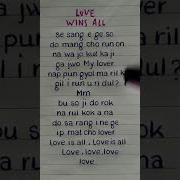 LOVE
WINS ALL
se sang e ge so
do mang cho run on
na wa jo kut ka ji
ga jwo My lover
nap pun gyol ma ril k
gil i run u ri dul?
Mm
bu so ji do rok
na rul kok a na
do sa rang i ne ge
ip mat cho lover
Love is all, Love is all
Love, love, love
love